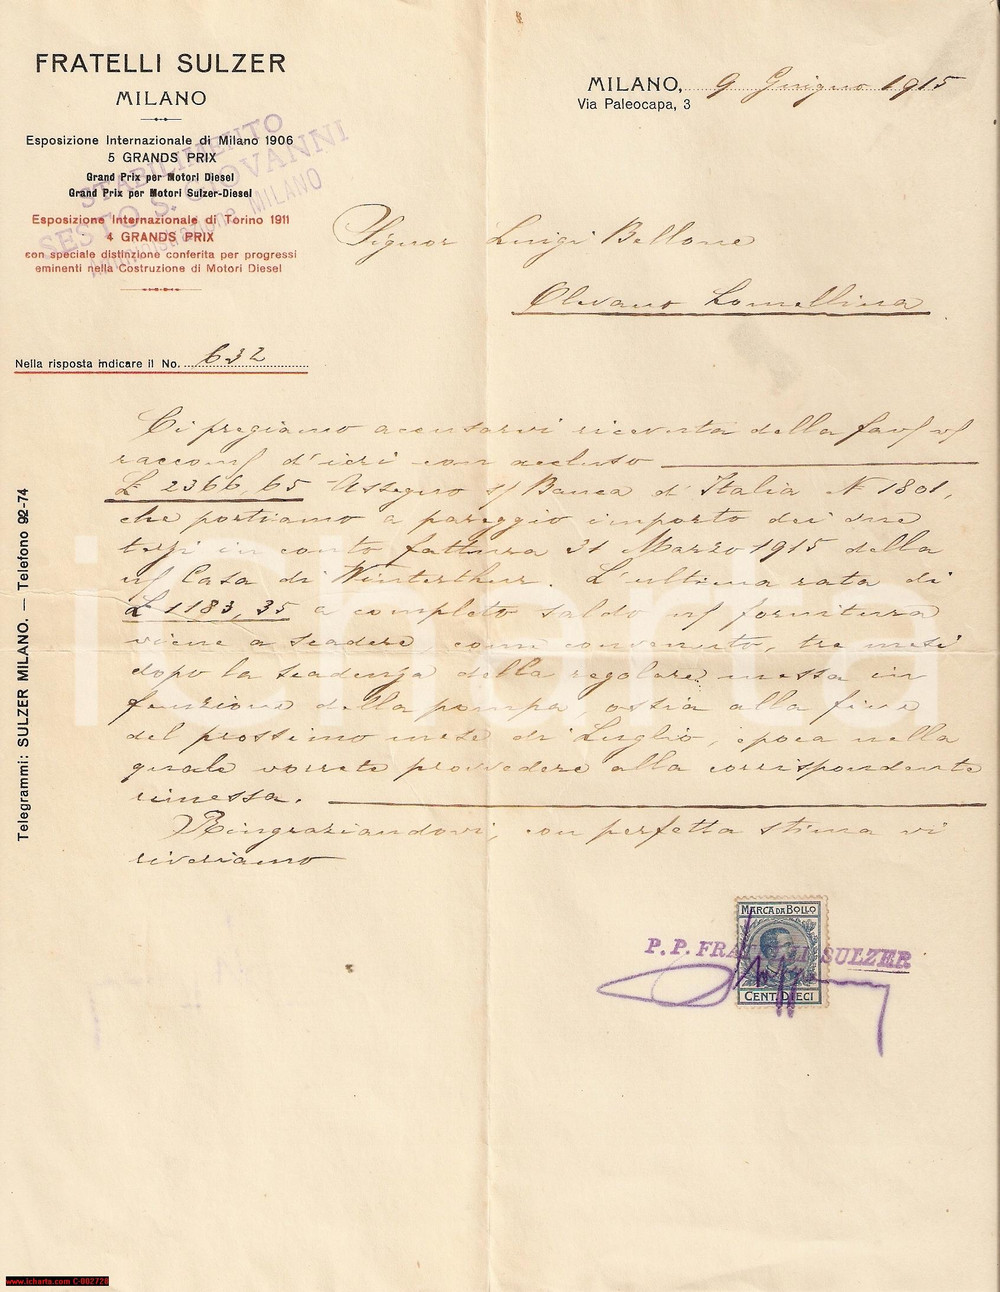 FRATELLI SULZER
MILANO
Esposizione Internazionale di Milano 1906
5 GRANDS PRIX
Grand Prix per Motori Diesel
Grand Prix per Motori Sulzer-Diesel
Esposizione Internazionale di Torino 1911
4 GRANDS PRIX
con speciale distinzione conferita per progressi
eminenti nella Costruzione di Motori Diesel
STABILIMENTO
SESTO S. GIOVANNI
Amministrazione MILANO
MILANO, 9 Giugno 1915
Via Paleocapa, 3
Signor Luigi Bellone
Olevano Lomellina
Nella risposta indicare il No. 632
Ci pregiamo accusarvi ricevuta della fav/ v/
raccom/ d'ieri con accluso
£ 2366,65 Assegno s/ Banca d'Italia N 1801,
che portiamo a pareggio importo dei due
terzi in conto fattura 31 Marzo 1915 della
n/ Casa di Winterthur. L'ultima rata di
£ 1183,35 a completo saldo n/ fornitura
viene a scadere, come convenuto, tre mesi
dopo la scadenza della regolare messa in
funzione della pompa, ossia alla fine
del prossimo mese di Luglio, epoca nella
quale vorrete provvedere alla corrispondente
rimessa.
Ringraziandovi, con perfetta stima vi
riveriamo
Telegrammi: SULZER MILANO. — Telefono 92-74
MARCA DA BOLLO
P. P. FRATELLI SULZER
CENT. DIECI
iCharta
www.icharta.com C-002728